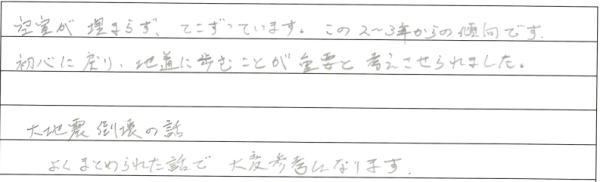 空室が埋まらず、てこずっています。この2〜3年からの傾向です.
初心に戻り、地道に歩むことが重要と考えさせられました。
大地震倒壊の話
よくまとめられた話で 大変参考になります.